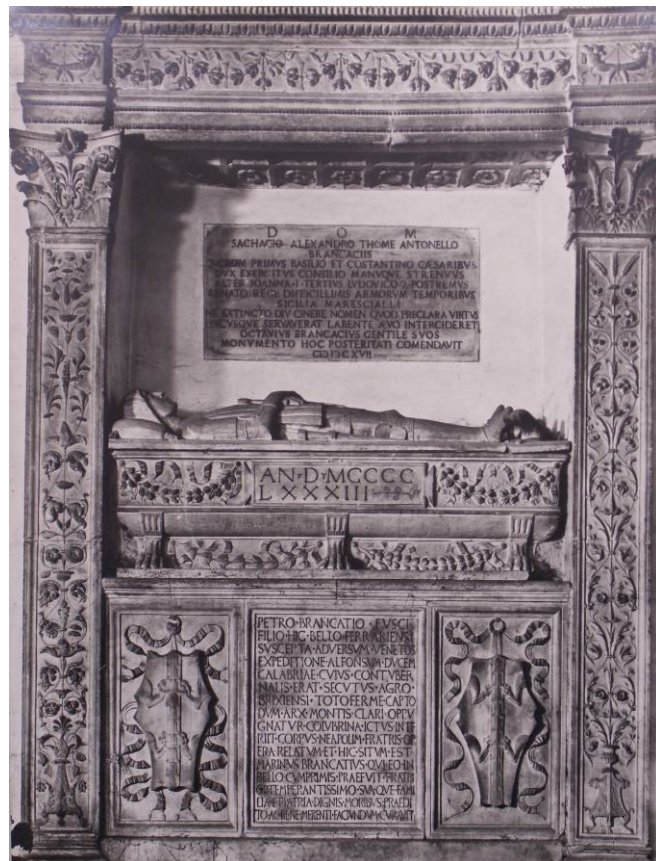 D O M
SACHACIO ALEXANDRO THOME ANTONELLO
BRANCACIIS
QVORVM PRIMVS BASILIO ET COSTANTINO CÆSARIBVS
DVX EXERCITVS CONSILIO MANVQVE STRENVVS
ALTER IOANNA·I·TERTIVS LVDOVICO·2·POSTREMVS
RENATO REGE DIFFICILLIMIS ARMORVM TEMPORIBVS
SICILIÆ MARESCIALLI
NE EXTINCTO DIV CINERE NOMEN QVOD PRECLARA VIRTVS
SERVAVERAT LABENTE ÆVO INTERCIDERET
OCTAVIVS BRANCACIVS GENTILE SVOS
MONVMENTO HOC POSTERITATI COMENDAVIT
CIƆIƆCXVII
AN·D·MCCCC
LXXXIII
PETRO·BRANCATIO·FVSCI
FILIO·HIC·BELLO·FERRARIENSI
SVSCEPTA·ADVERSVM·VENETOS
EXPEDITIONE·ALFONSVM·DVCEM
CALABRIAE·CVIVS·CONTVBER
NALIS·ERAT·SECVTVS·AGRO·
BRIXIENSI·TOTO·FERME·CAPTO
DVM·ARX·MONTIS·CLARI·OPPV
GNATVR·COLVBRINA·ICTVS·INTE
RIIT·CORPVS·NEAPOLIM·FRATRIS·OP
ERA·RELATVM·ET·HIC·SITVM·EST·
MARINVS·BRANCATIVS·QVI·EO·IN
BELLO·CVMPRIMIS·PRAEFVIT·FRATRI
TEMPERANTISSIMO·SVA·QVE·FAMI
LIA·ET·PATRIA·DIGNIS·MORIBVS·PRAEDI
TO·AC·BENE·MERENTI·FACIVNDVM·CVRAVIT